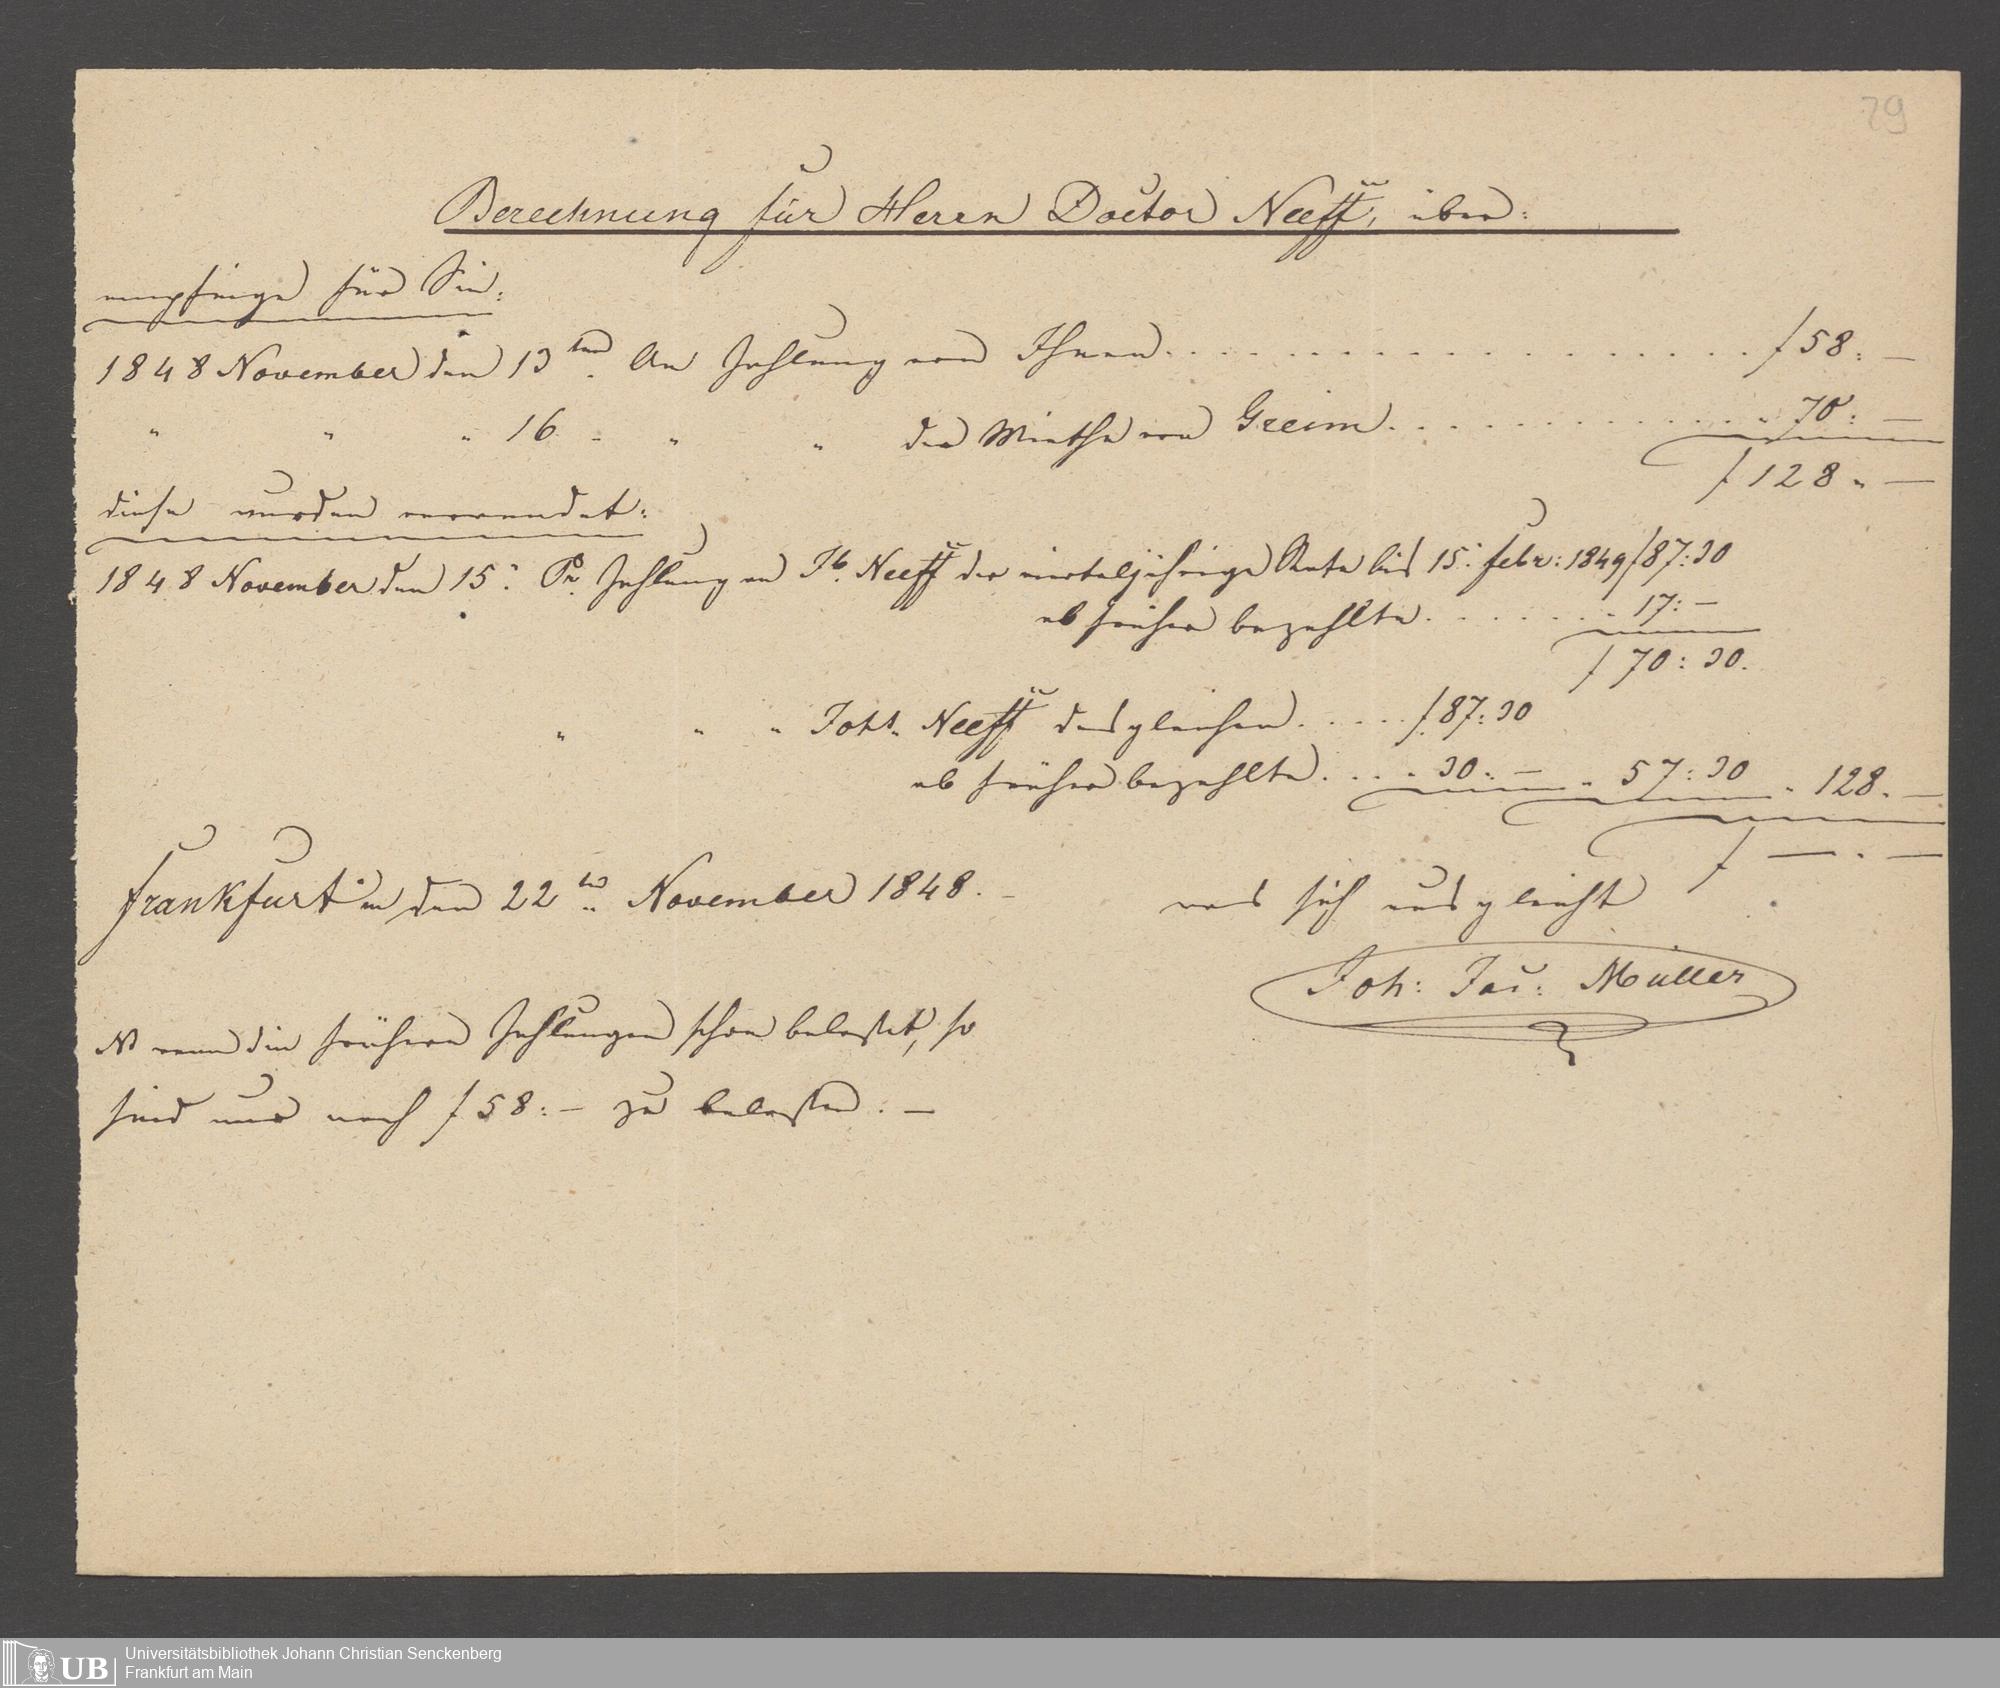 79
Berechnung für Herrn Doctor Neeff, über:
empfinge für Sie:
1848 November den 13ten An Zahlung von Ihnen . . . . . . . . . . . . . . . . . . f 58: —
" " " 16 - " " der Miethe von Greim . . . . . . . . . . . . . " 70: —
f 128 " —
diese wurden verwendet:
1848 November den 15: Pr. Zahlung an Jb. Neeff der vierteljährige Rate bis 15: Febr: 1849 f 87:30
ab früher bezahlte . . . . . . " 17: —
f 70: 30.
" " " Johs. Neeff desgleichen . . . . . f 87:30
ab früher bezahlte . . . " 30: — " 57:30 " 128. —
f — . —
Frankfurt a/m den 22ten November 1848. -
was sich ausgleicht
Joh: Jac: Müller
NB wenn die frühern Zahlungen schon belastet, so
sind nur noch f 58: — zu belasten. —
UB
Universitätsbibliothek Johann Christian Senckenberg
Frankfurt am Main